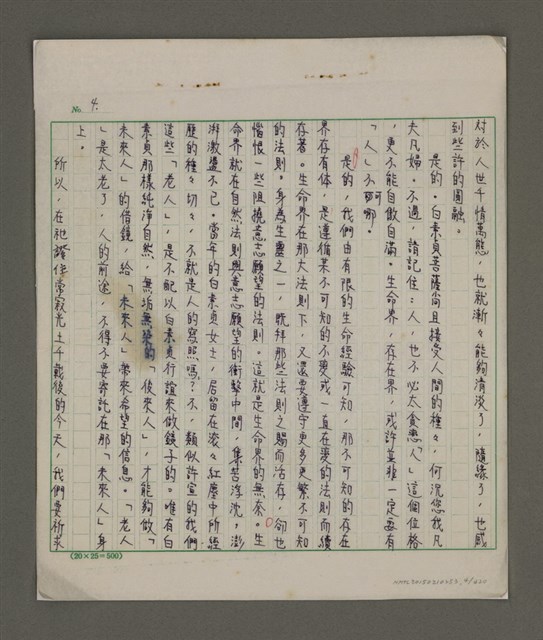 No. 4.
對於人世千情萬態，也就漸々能夠清淡了，隨緣了，也感
到些許的圓融。
是的。白素貞菩薩尚且接受人間的種々，何況您我凡
夫凡婦。不過，請記住：人，也不必太貪戀「人」這個位格
，更不能自傲自滿。生命界，存在界，或許並非一定要有
「人」不可哪。
是的，我們由有限的生命經驗可知，那不可知的存在
界存有体，是遵循某不可知的不變或一直在變的法則而續
存著。生命界在那大法則下，又還要遵守更多更繁不可知
的法則。身為生靈之一，既拜那些法則之賜而活存，卻也
惱恨一些阻撓意志願望的法則。這就是生命界的無奈。生
命界就在自然法則與意志願望的衝擊中間，集苦浮沈，澎
湃激盪不已。當年的白素貞女士，居留在滾々紅塵中所經
歷的種々切々，不就是人的寫照嗎？不，類似許宣的我們
這些「老人」，是不配以白素貞行誼來做鏡子的。唯有白
素貞那樣純淨自然，無垢無染的「後來人」，才能夠做「
未來人」的借鏡，給「未來人」帶來希望的信息。「老人
」是太老了，人的前途，不得不要寄託在那「未來人」身
上。
所以，在祂證住常寂光土千載後的今天，我們要祈求
(20×25=500)